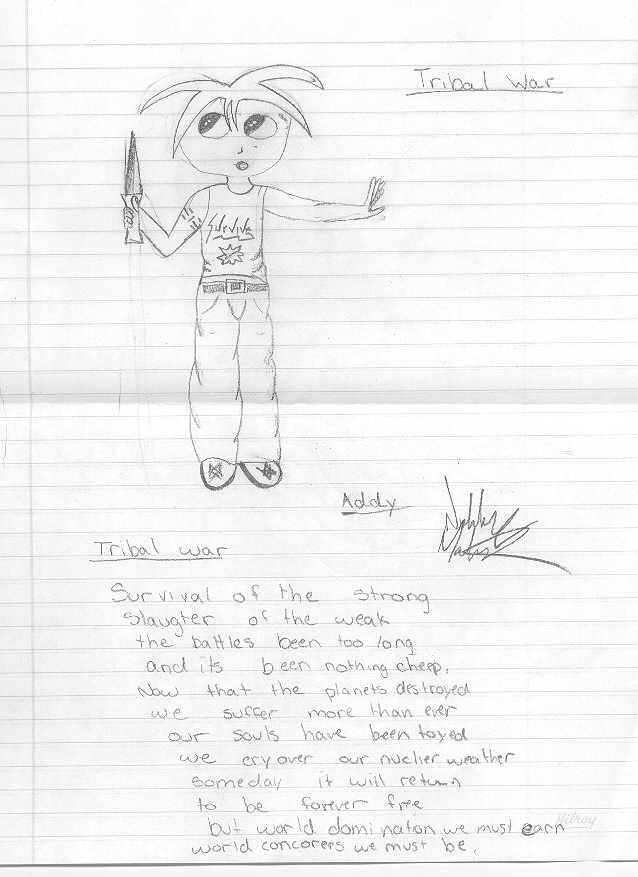 Tribal war
Survive
Addy
Tribal war
Survival of the strong
Slaugter of the weak
the battles been too long
and its been nothing cheep.
Now that the planets destroyed
we suffer more than ever
our souls have been toyed
we cry over our nuclier weather
someday it will return
to be forever free
but world domination we must earn
world concorers we must be.
Hilroy